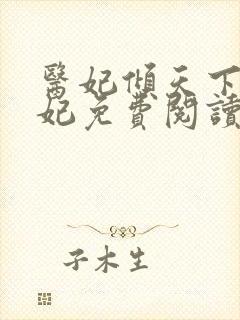 醫妃傾天下
妃免費閱讀
子木生